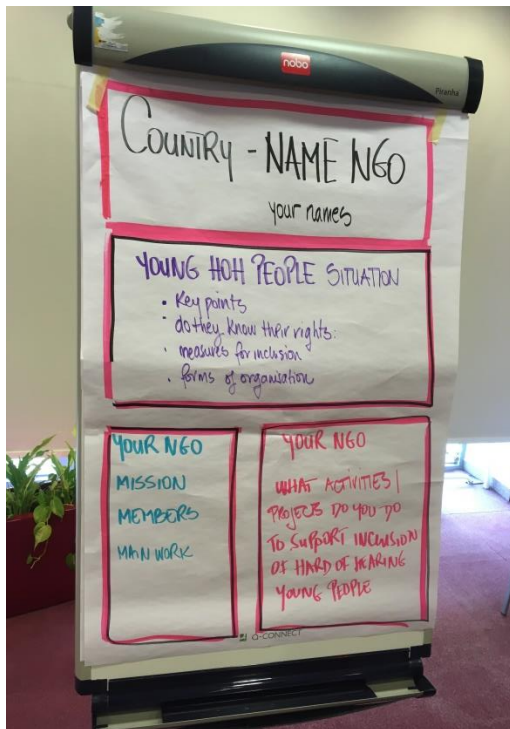 nobo
Piranha
COUNTRY - NAME NGO
your names
YOUNG HOH PEOPLE SITUATION
• Key points
• do they know their rights:
• measures for inclusion
• forms of organisation
YOUR NGO
MISSION
MEMBERS
MAIN WORK
YOUR NGO
WHAT ACTIVITIES |
PROJECTS DO YOU DO
TO SUPPORT INCLUSION
OF HARD OF HEARING
YOUNG PEOPLE
Q-CONNECT